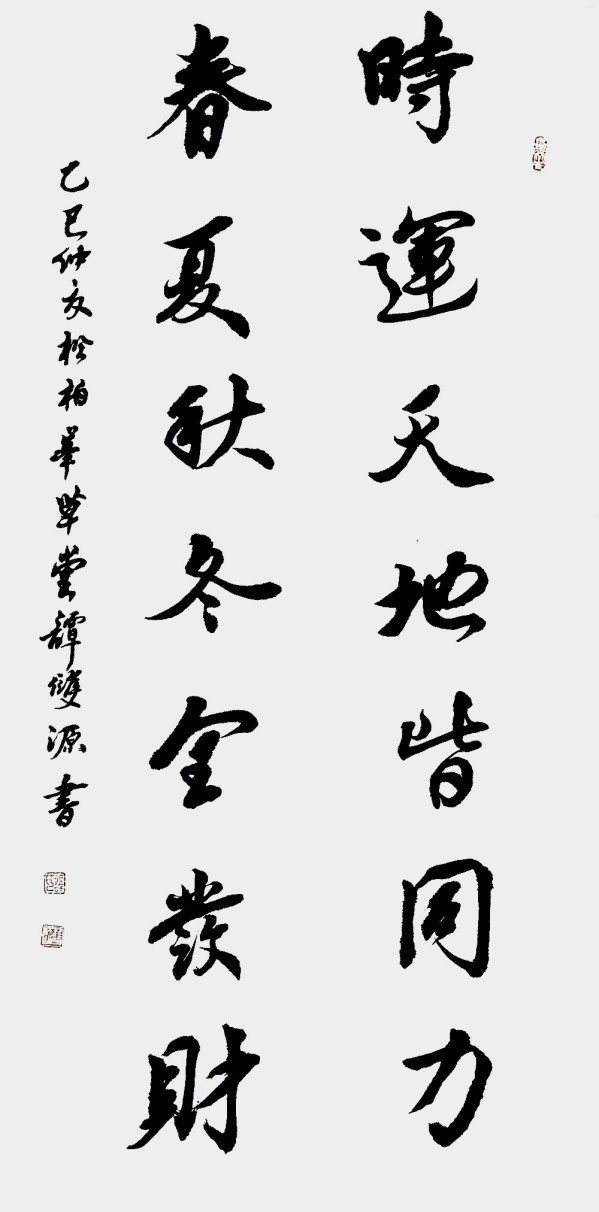 時運天地皆同力
春夏秋冬全發財
乙巳仲夏松柏華草堂譚雙源書